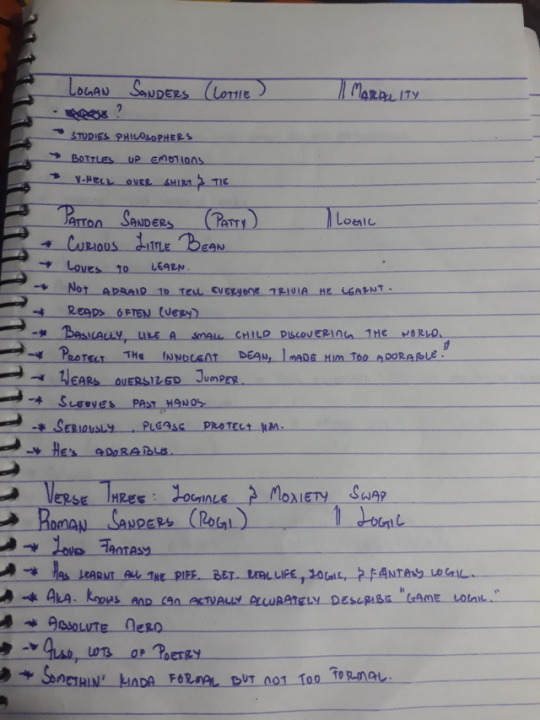 Logan Sanders (Lottie) || Marality
- ?
→ studies philosophers
→ bottles up emotions
→ v-neck over shirt & tie
Patton Sanders (Patty) || Logic
→ Curious Little Bean
→ Loves to learn.
→ Not adraid to tell everyone trivia he learnt.
→ Reads often (very)
→ Basically, like a small child discovering the world.
→ Protect the innocent bean, I made him too adorable!
→ Wears oversized jumper.
→ Sleeves past hands.
→ Seriously, please protect him.
→ He's adorable.
Verse Three: Logince & Moxiety Swap
Roman Sanders (Rogi) || Logic
→ Loves Fantasy
→ Has learnt all the diff. bet. real life, logic, & fantasy logic.
→ Aka. knows and can actually accurately describe "game logic."
→ Absolute nerd
→ Also, lots of poetry
→ Somethin' kinda formal but not too formal.